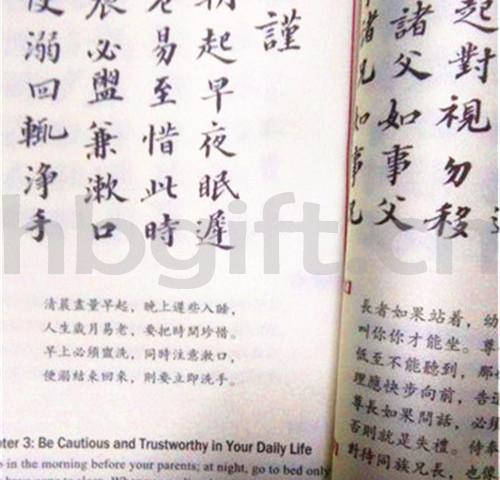 謹
朝起早夜眠遲
老易至惜此時
晨必盥兼漱口
便溺回輒淨手
清晨盡量早起，晚上遲些入睡，
人生歲月易老，要把時間珍惜。
早上必須盥洗，同時注意漱口，
便溺結束回來，則要立即洗手。
ter 3: Be Cautious and Trustworthy in Your Daily Life
in the morning before your parents; at night, go to bed only
起對視勿移
諸父如事父
諸兄如事兄
長者如果站着，幼
叫你你才能坐。尊
低至不能聽到，那
理應快步向前，告
尊長如果問話，必
否則就是失禮。侍奉
對待同族兄長，也像
hbgift.cn